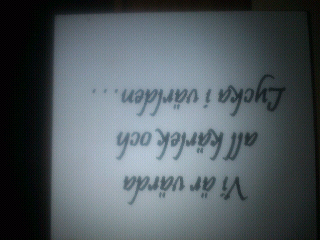 Vi är värda
all kärlek och
Lycka i världen....